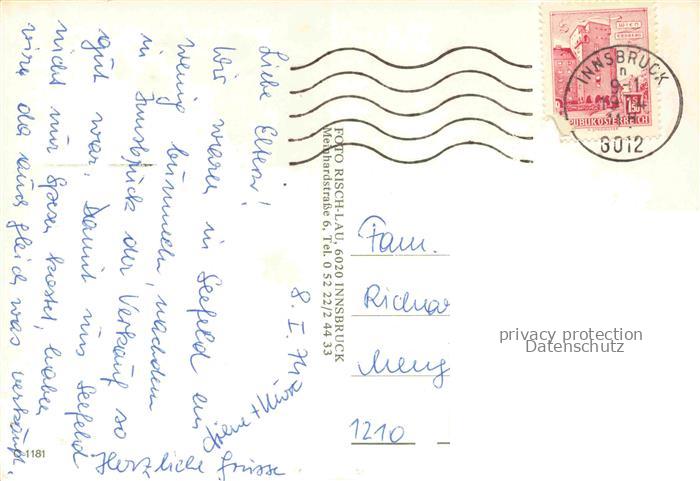 Liebe Eltern!
Wir waren in Seefeld ein
wenig bummeln, nachdem
in Innsbruck der Verkauf so
gut war. Damit uns Seefeld
nicht nur Spesen kostet, haben
wir da auch gleich was verkauft.
Herzliche Grüsse
8. I. 74
FOTO RISCH-LAU, 6020 INNSBRUCK
Meinhardstraße 6, Tel. 0 52 22/2 44 33
1181
WIEN
ERDBERG
1.50
REPUBLIK ÖSTERREICH
INNSBRUCK
n
6012
Fam.
Richar
Meng
1210
privacy protection
Datenschutz